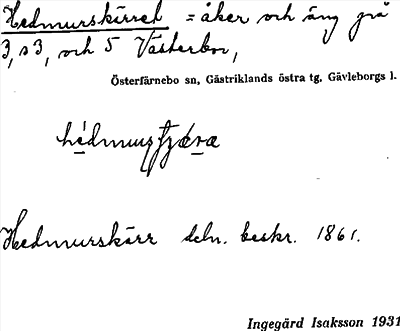 Hedmurskärret = åker och äng på
3, s3, och 5 Västerbor,
Österfärnebo sn, Gästriklands östra tg, Gävleborgs l.
Hedmurskärr deln. beskr. 1861.
Ingegärd Isaksson 1931